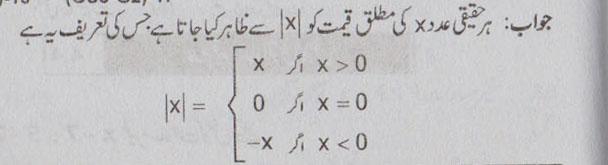 جواب: ہر حقیقی عدد x کی مطلق قیمت کو |x| سے ظاہر کیا جاتا ہے جس کی تعریف یہ ہے
x اگر x > 0
|x| = { 0 اگر x = 0
−x اگر x < 0